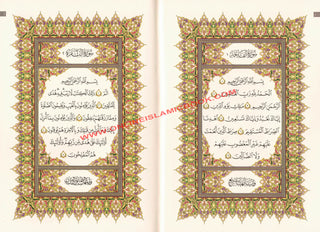 سُورَةُ الفَاتِحَةِ
بِسْمِ اللَّهِ الرَّحْمَٰنِ الرَّحِيمِ
الْحَمْدُ لِلَّهِ رَبِّ الْعَٰلَمِينَ الرَّحْمَٰنِ
الرَّحِيمِ مَٰلِكِ يَوْمِ الدِّينِ إِيَّاكَ نَعْبُدُ
وَإِيَّاكَ نَسْتَعِينُ اهْدِنَا الصِّرَٰطَ
الْمُسْتَقِيمَ صِرَٰطَ الَّذِينَ أَنْعَمْتَ
عَلَيْهِمْ غَيْرِ الْمَغْضُوبِ عَلَيْهِمْ
وَلَا الضَّالِّينَ
سُورَةُ البَقَرَةِ
بِسْمِ اللَّهِ الرَّحْمَٰنِ الرَّحِيمِ
الٓمٓ ذَٰلِكَ الْكِتَٰبُ لَا رَيْبَ فِيهِ هُدًى
لِلْمُتَّقِينَ الَّذِينَ يُؤْمِنُونَ بِالْغَيْبِ وَيُقِيمُونَ
الصَّلَوٰةَ وَمِمَّا رَزَقْنَٰهُمْ يُنفِقُونَ وَالَّذِينَ
يُؤْمِنُونَ بِمَا أُنزِلَ إِلَيْكَ وَمَا أُنزِلَ مِن قَبْلِكَ
وَبِالْآخِرَةِ هُمْ يُوقِنُونَ أُولَٰئِكَ عَلَىٰ هُدًى مِّن رَّبِّهِمْ وَأُولَٰئِكَ
هُمُ الْمُفْلِحُونَ